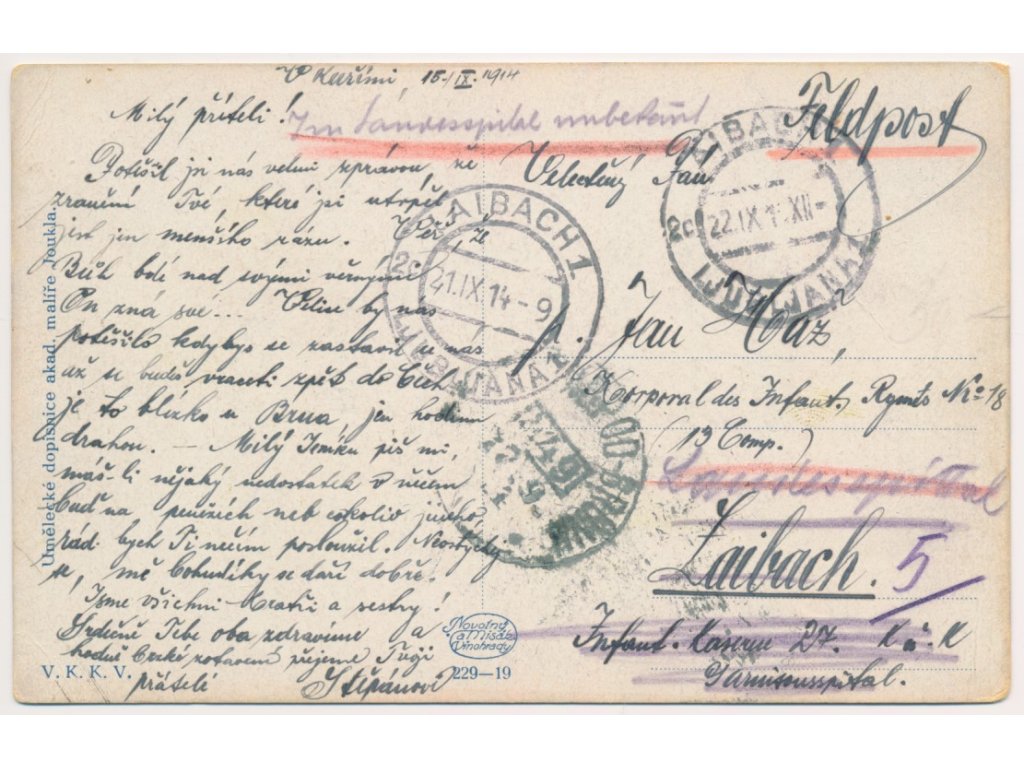 V Kuřimi, 15/IX. 1914
Milý příteli!
Potěšil jsi nás velmi zprávou, že
zranění Tvé, které jsi utrpěl,
jest jen menšího rázu. Věř, že
Bůh bdí nad svými věrnými
On zná své... Velice by nás
potěšilo kdybys se zastavil u nás
až se budeš vraceti zpět do Čech
je to blízko u Brna jen hodinu
drahou. — Milý Jeníku piš mi,
máš-li nějaký nedostatek v něčem
buď na penězích neb cokoliv jiného
rád bych Ti něčím posloužil. Neostýchej
se, mě Bohudíky se daří dobře.
Jsme všichni bratři a sestry!
Srdečně Tebe oba zdravíme a
hodně brzké zotavení přejeme Tvoji
přátelé Štěpánovi
Umělecké dopisnice akad. malíře Joukla.
V. K. K. V.
Novotný
a Misař
Vinohrady
229—19
Im Landesspital unbekannt
Feldpost
Velectěný Pán
Jan Ház,
Korporal des Infant. Rgmts No 18
(13 Comp.)
Landesspital
Laibach. 5
Infant. Kaserne 27. K u. K
Garnisonsspital.
LAIBACH 1
2c 21.IX.14-9
LJUBLJANA 1
LAIBACH 1
2c 22.IX.1 XII-
LJUBLJANA 1